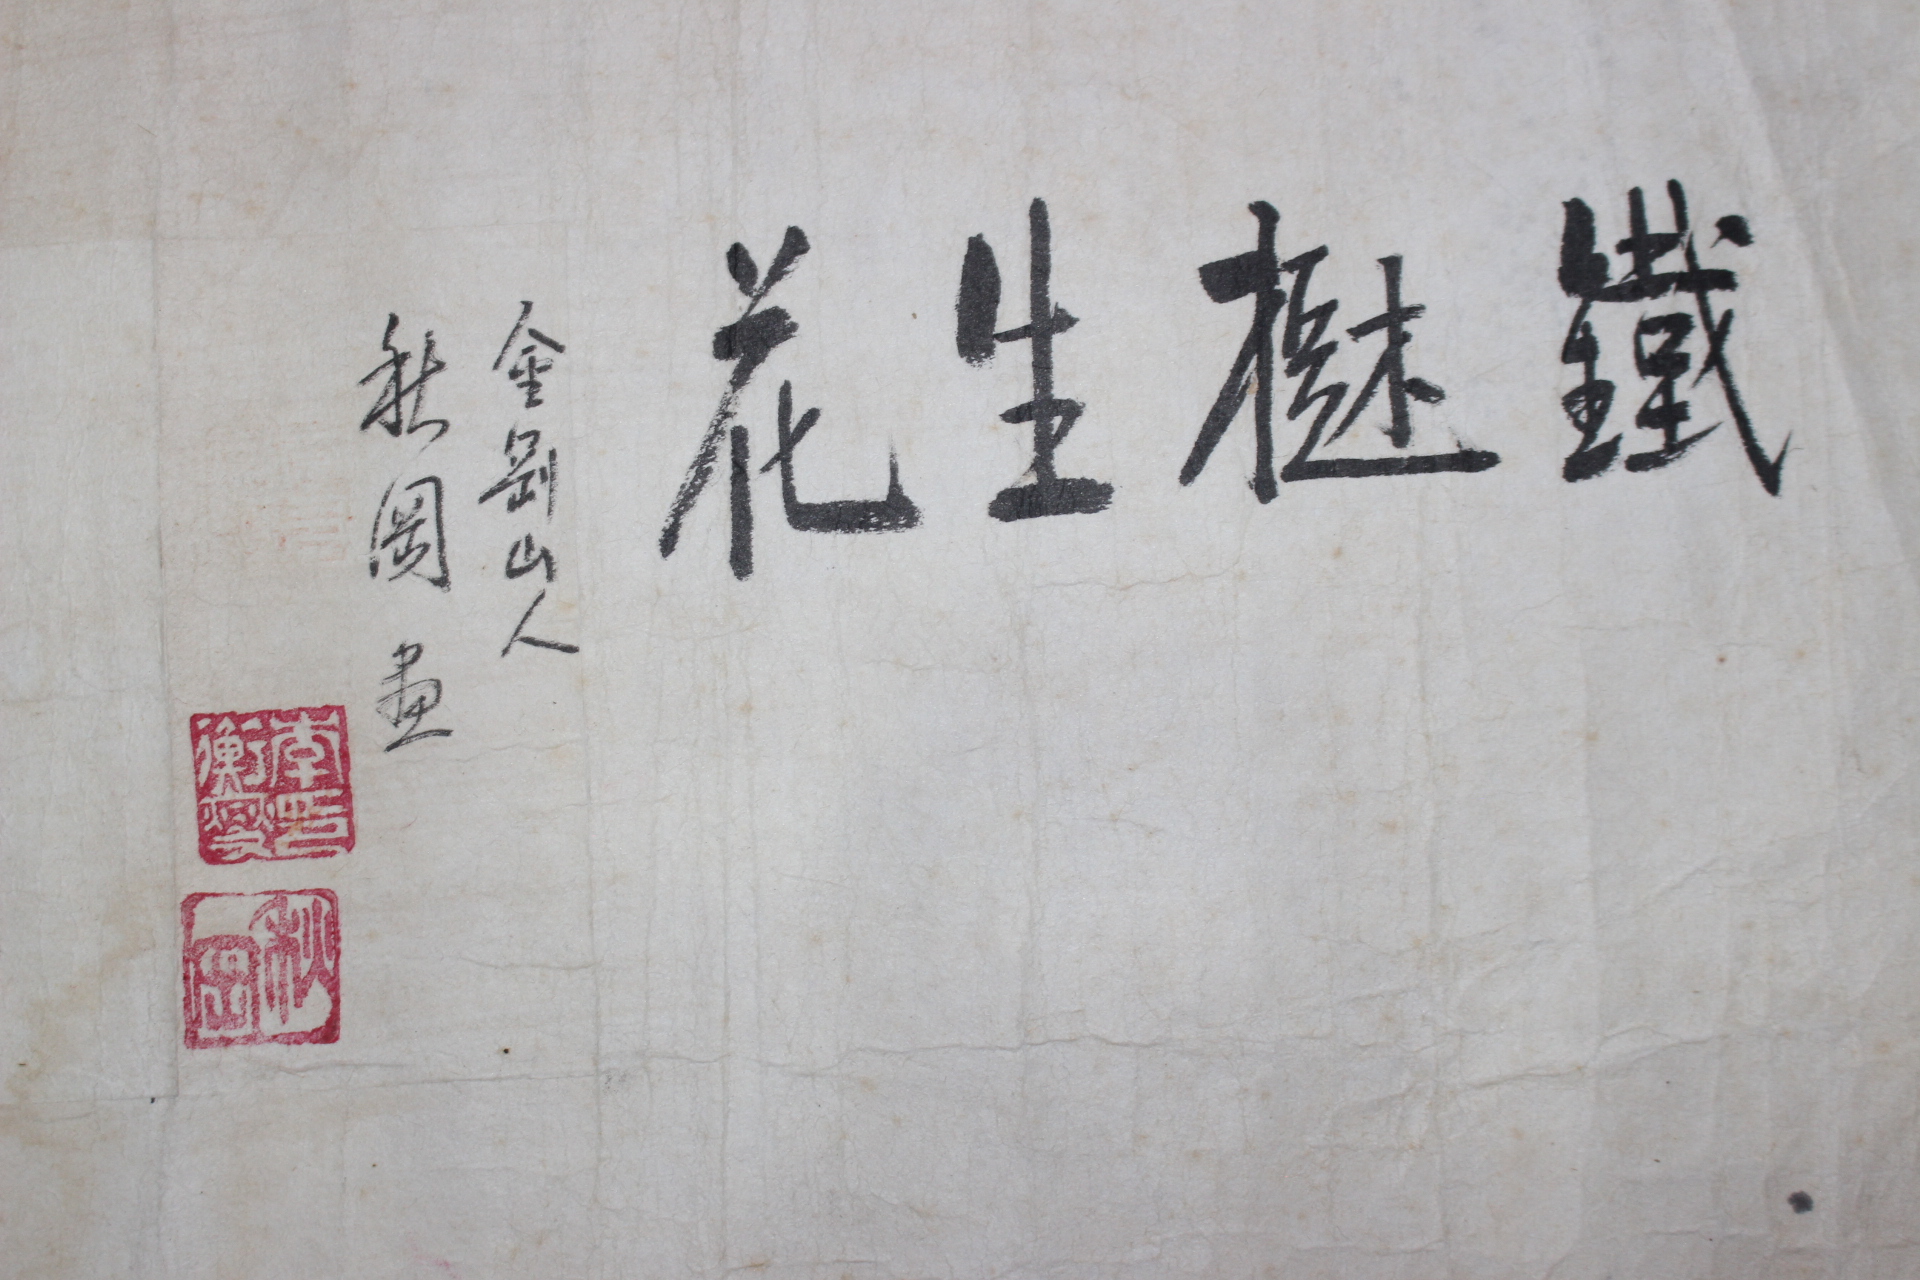 鐵生花
金剛山人
秋岡畫
秋岡